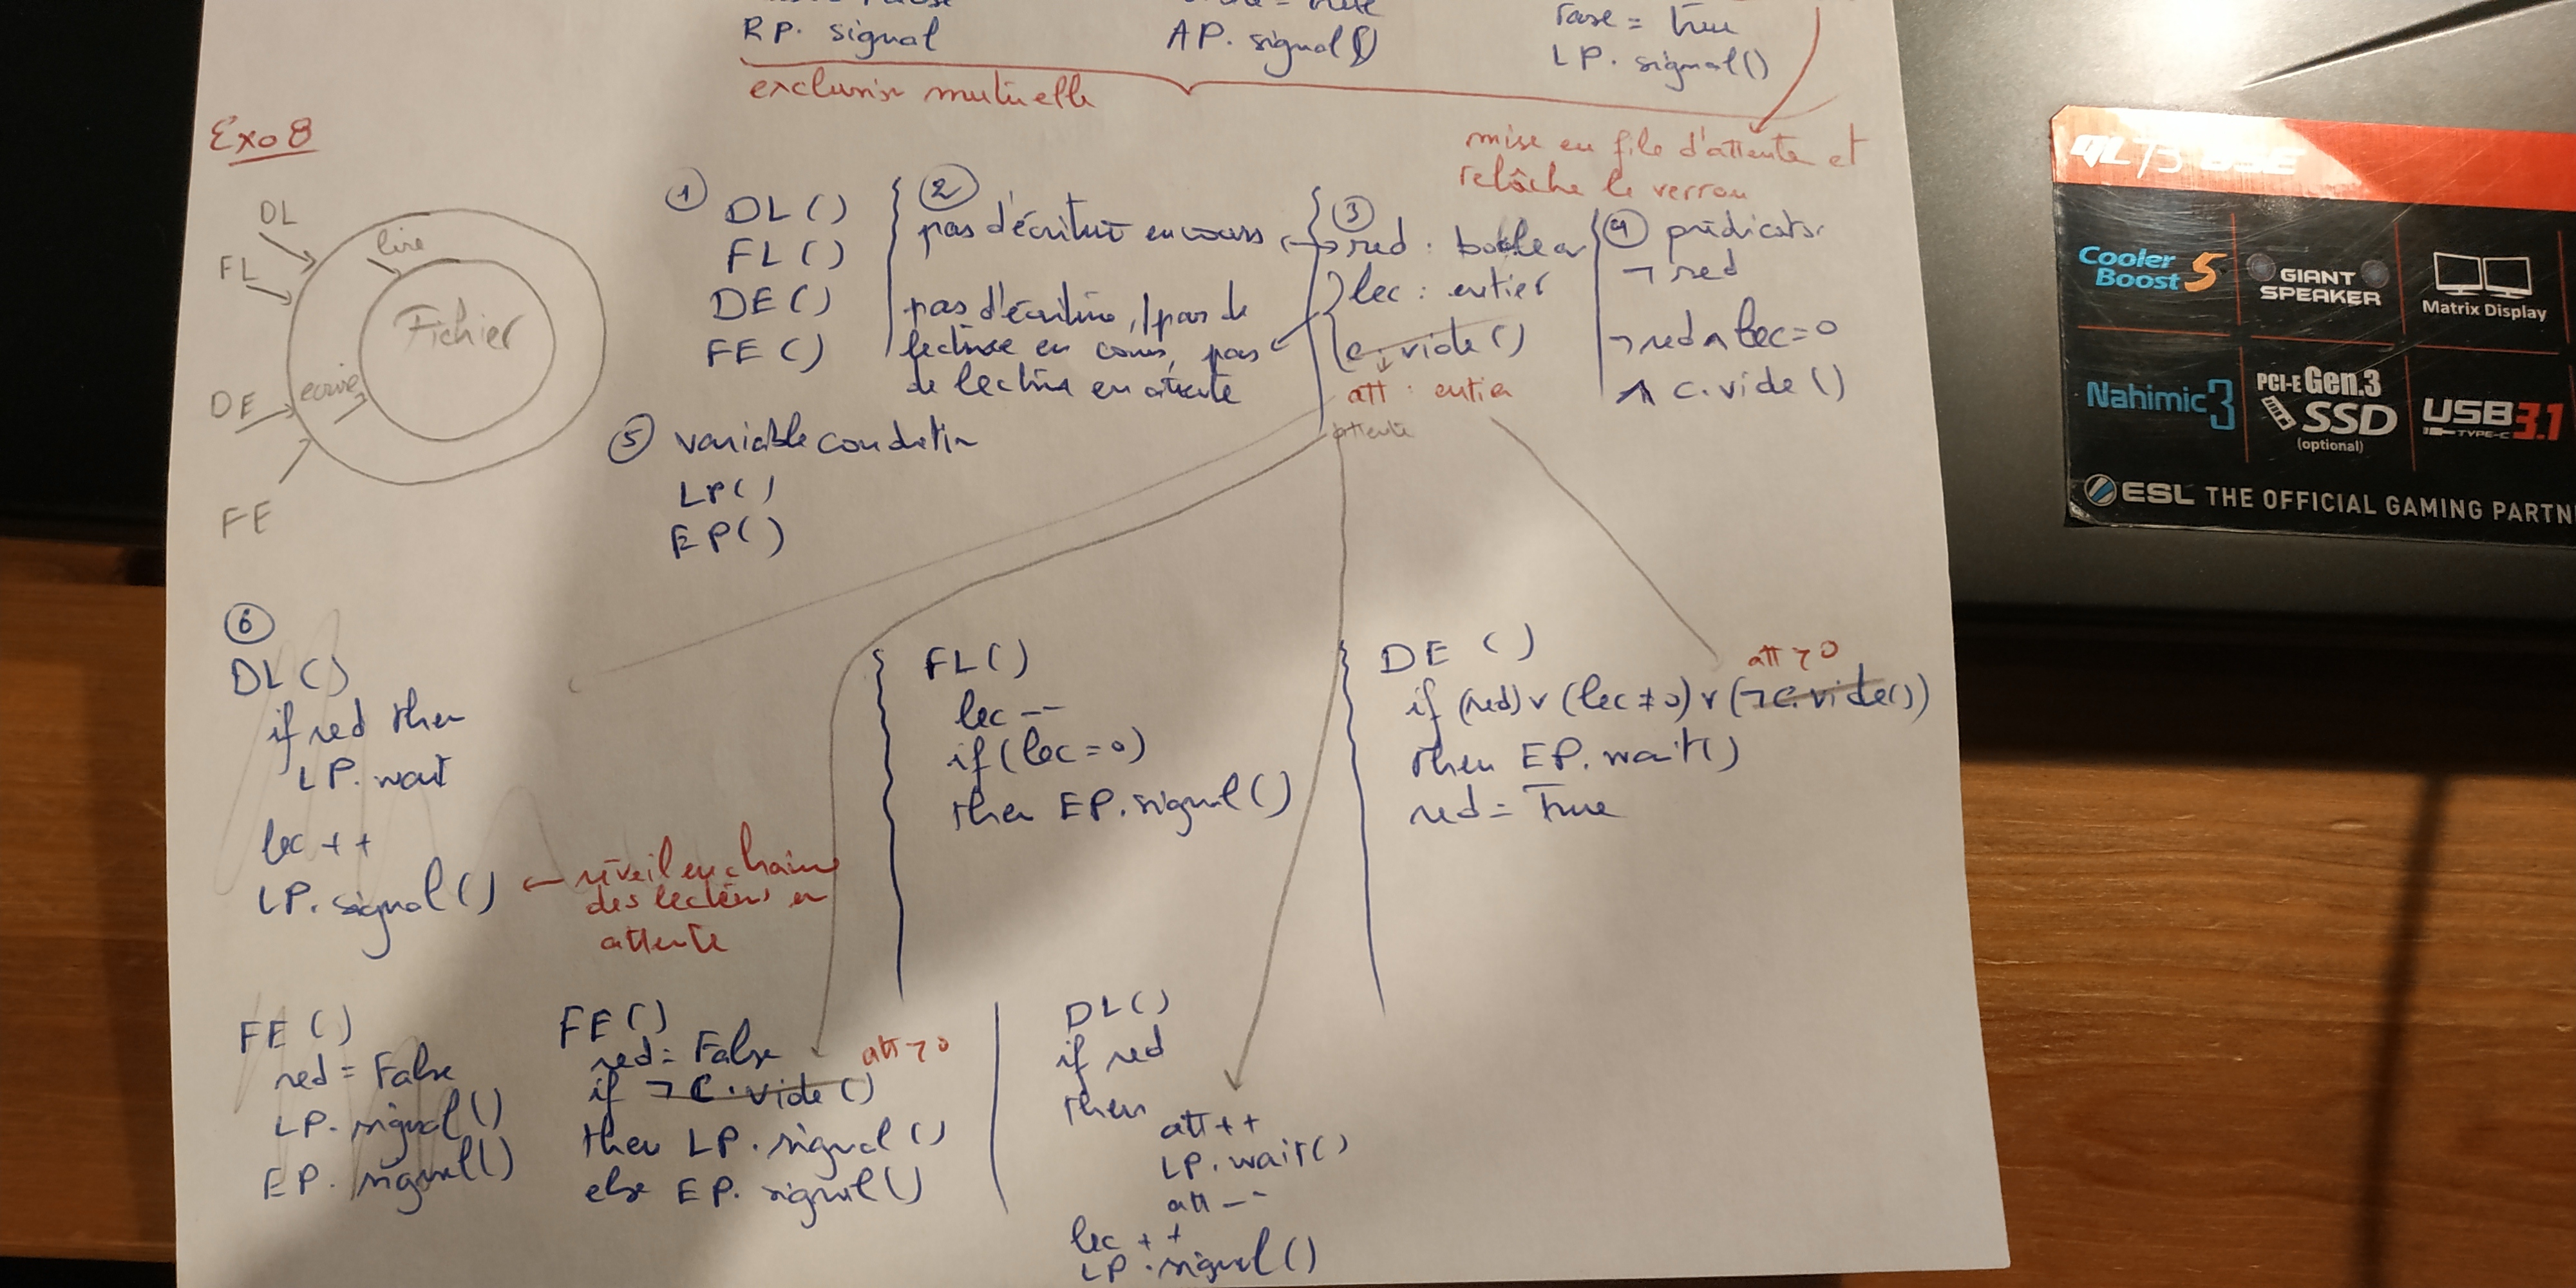 RP. signal
AP. signal()
rase = true
LP. signal()
exclusion mutuelle
mise en file d'attente et
relâche le verrou
Exo 8
DL
FL
DE
FE
lire
ecrire
Fichier
① DL()
FL()
DE()
FE()
②
pas d'écriture en cours
pas d'écriture, pas de
lecture en cours, pas
de lecture en attente
③
red : boolean
lec : entier
c.vide()
att : entier
attente
④ prédicats
¬ red
¬ red ∧ lec = 0
∧ c.vide()
⑤ variable condition
LP()
EP()
⑥
DL()
if red then
LP. wait
lec ++
LP. signal() ← réveil en chaine
des lecteurs en
attente
FL()
lec --
if (lec = 0)
then EP. signal()
DE ()
att > 0
if (red) v (lec ≠ 0) v (¬ c.vide())
then EP. wait()
red = True
FE ()
red = False
LP. signal()
EP. signal()
FE ()
red = False
att > 0
if ¬ c.vide()
then LP. signal()
else EP. signal()
DL()
if red
then
att ++
LP. wait()
att --
lec ++
LP. signal()
Cooler
Boost 5
GIANT
SPEAKER
Matrix Display
Nahimic 3
PCI-E Gen.3
SSD
(optional)
USB 3.1
TYPE-C
ESL THE OFFICIAL GAMING PARTN